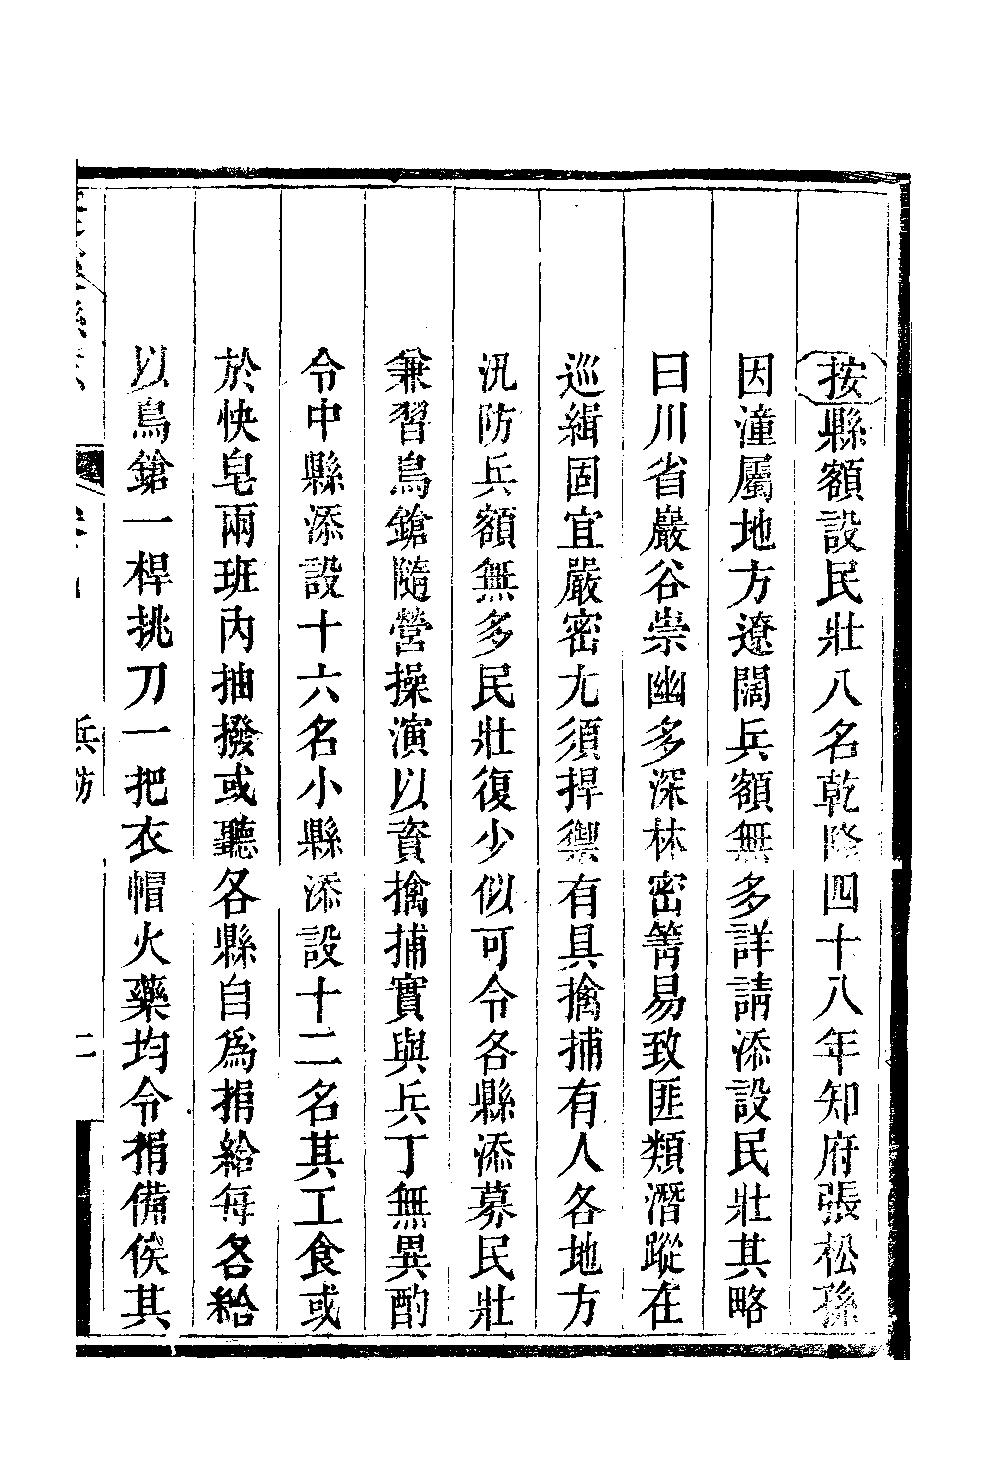 按縣額設民壯八名乾隆四十八年知府張松孫
因潼屬地方遼闊兵額無多詳請添設民壯其略
曰川省巖谷崇幽多深林密箐易致匪類潛蹤在
巡緝固宜嚴密尤須捍禦有具擒捕有人各地方
汛防兵額無多民壯復少似可令各縣添募民壯
兼習鳥鎗隨營操演以資擒捕實與兵丁無異酌
令中縣添設十六名小縣添設十二名其工食或
於快皂兩班內抽撥或聽各縣自爲捐給每名給
以鳥鎗一桿挑刀一把衣帽火藥均令捐備俟其
兵防
二